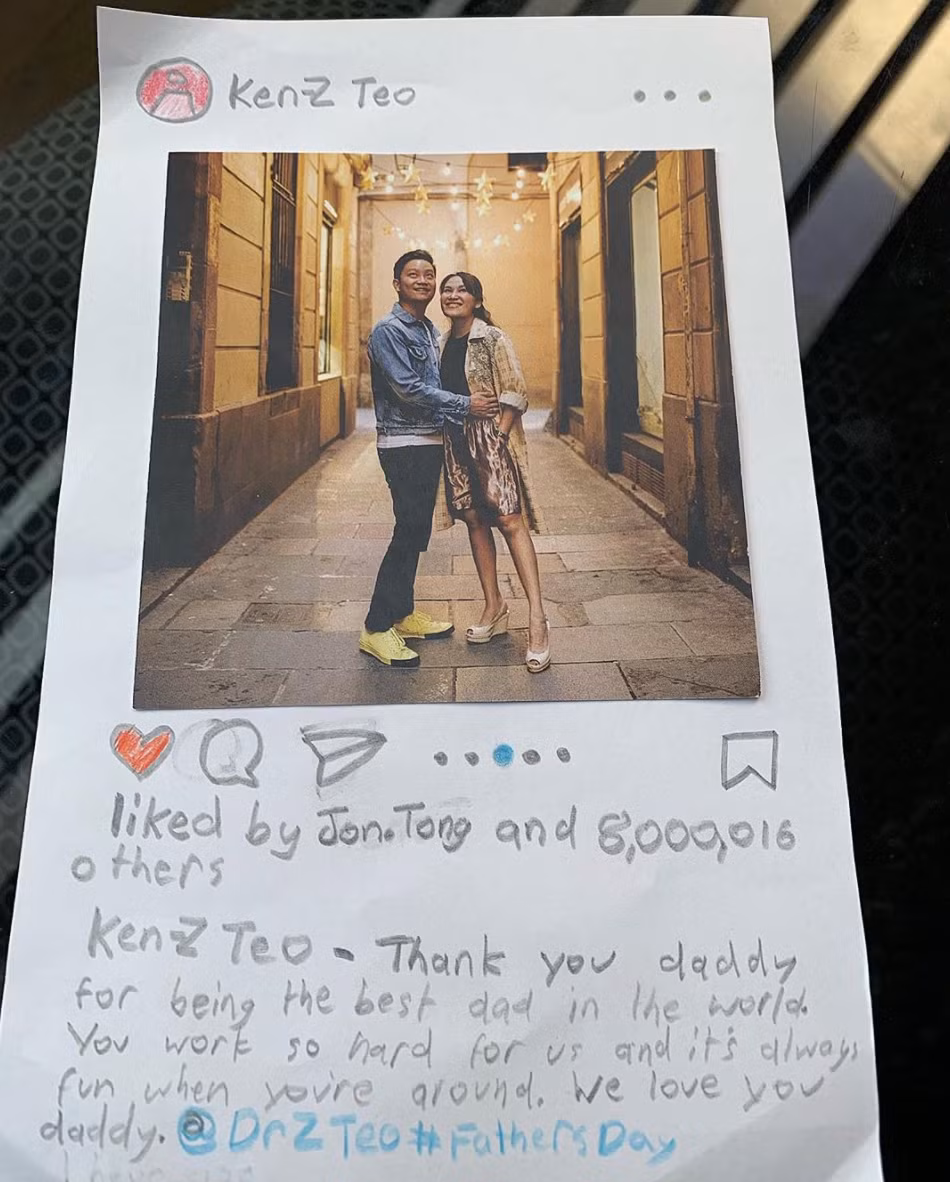 Ken-Z Teo
liked by Jon.Tong and 8,000,016
others
Ken-Z Teo - Thank you daddy
for being the best dad in the world.
You work so hard for us and it's always
fun when you're around. We love you
daddy. @DrZTeo#FathersDay